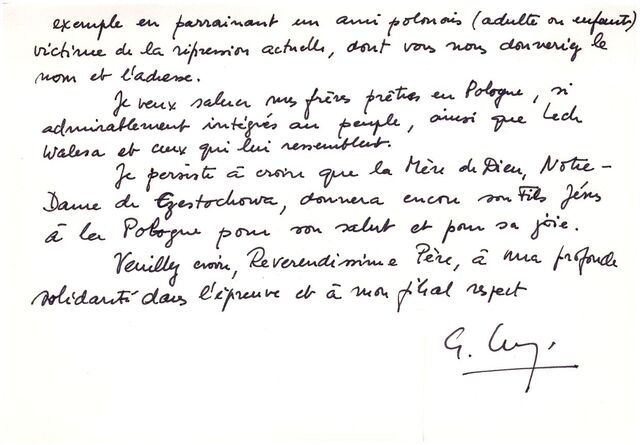 exemple en parrainant un ami polonais (adulte ou enfants)
victime de la répression actuelle, dont vous nous donneriez le
nom et l'adresse.
Je veux saluer mes frères prêtres en Pologne, si
admirablement intégrés au peuple, ainsi que Lech
Walesa et ceux qui lui ressemblent.
Je persiste à croire que la Mère de Dieu, Notre-
Dame de Czestochowa, donnera encore son Fils Jésus
à la Pologne pour son salut et pour sa joie.
Veuillez croire, Reverendissime Père, à ma profonde
solidarité dans l'épreuve et à mon filial respect
G.